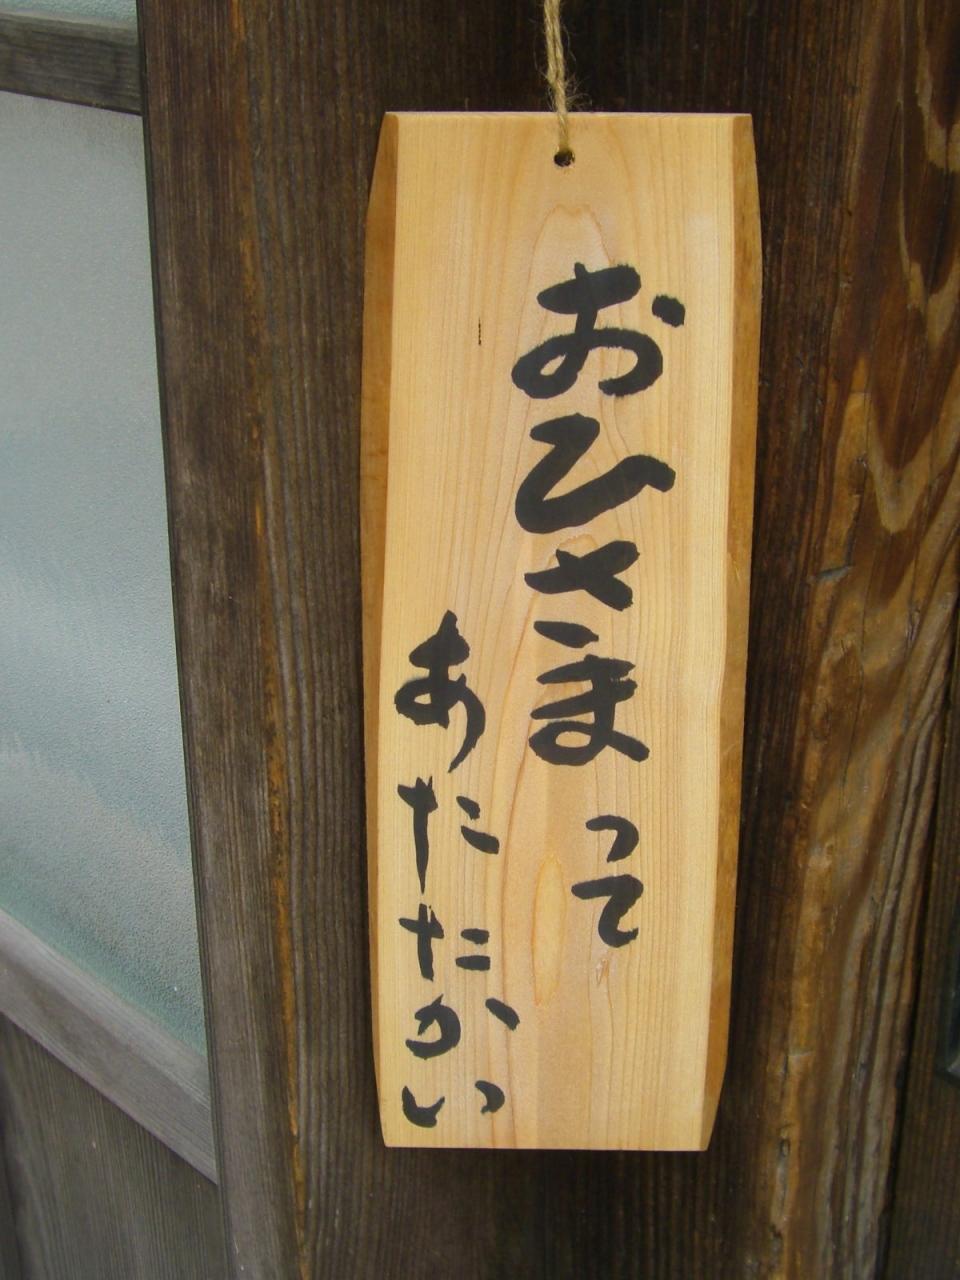 おひさまって
あたたかい